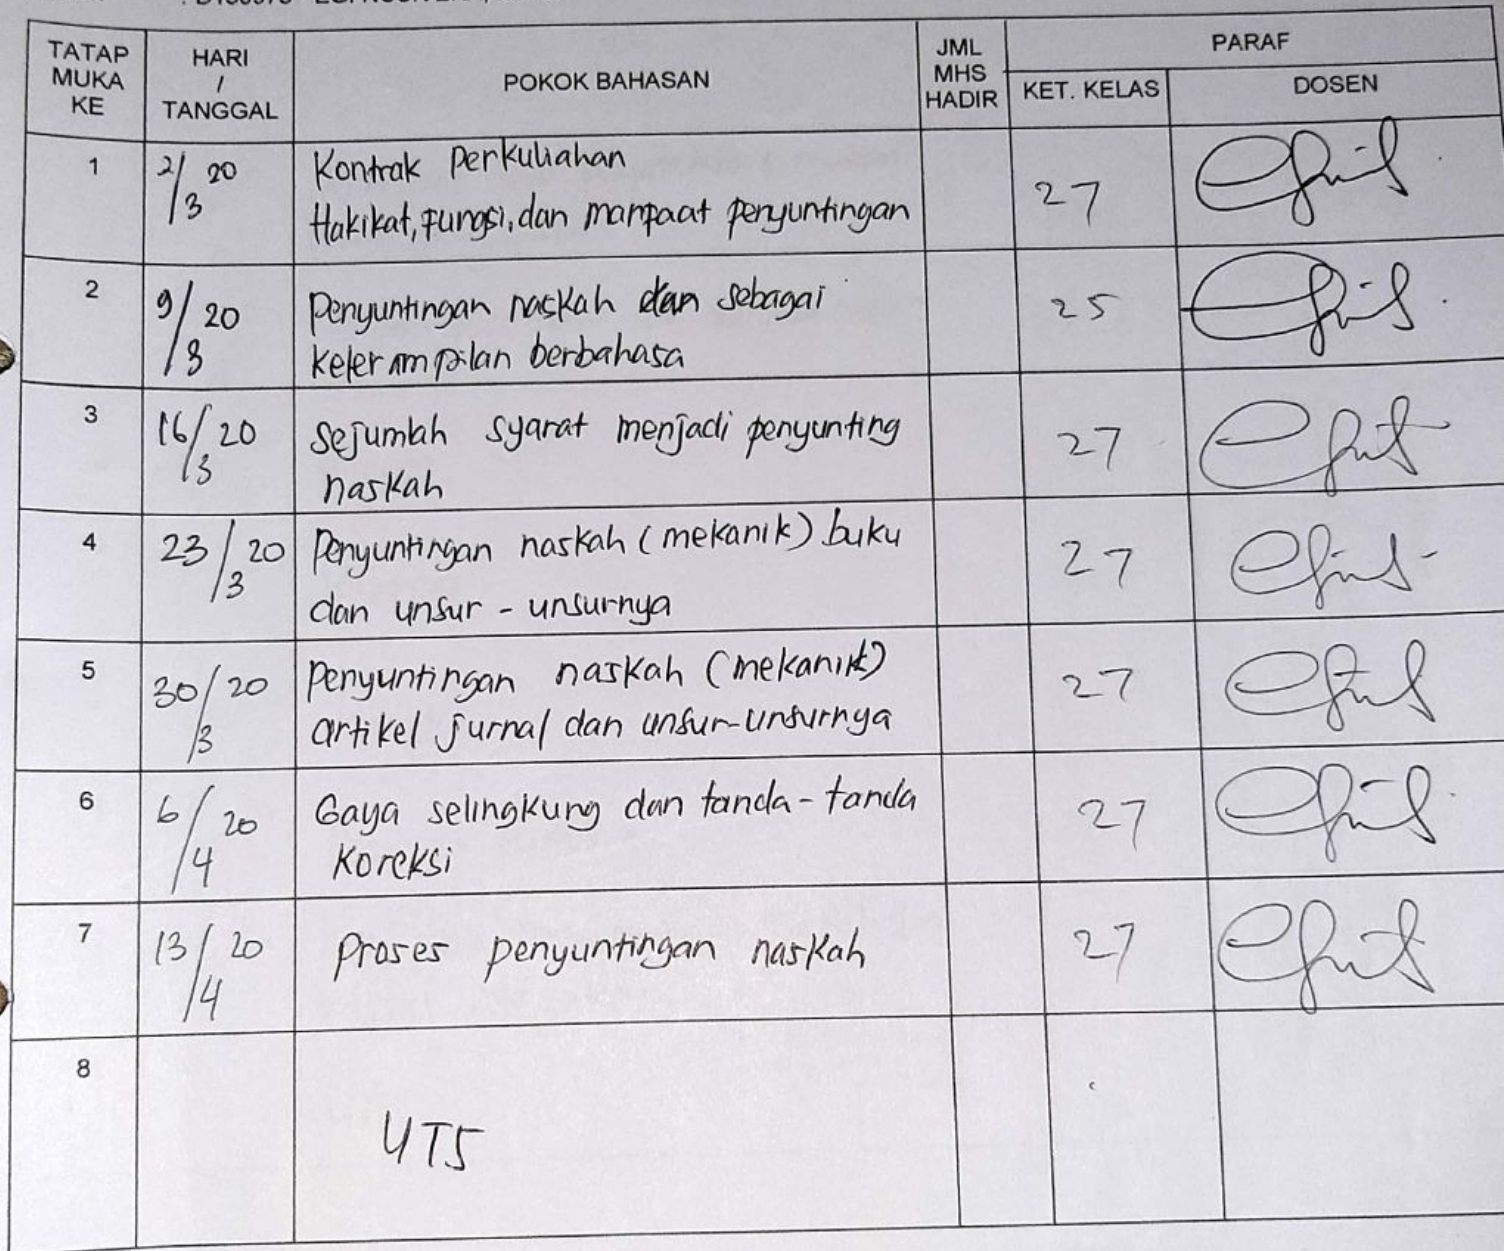 TATAP MUKA KE
HARI / TANGGAL
POKOK BAHASAN
JML MHS HADIR
PARAF
KET. KELAS
DOSEN
1
2/3 20
Kontrak Perkuliahan
Hakikat, fungsi, dan manfaat penyuntingan
27
2
9/3 20
Penyuntingan naskah dan sebagai
keterampilan berbahasa
25
3
16/3 20
Sejumlah syarat menjadi penyunting
naskah
27
4
23/3 20
Penyuntingan naskah (mekanik) buku
dan unsur - unsurnya
27
5
30/3 20
Penyuntingan naskah (mekanik)
artikel jurnal dan unsur-unsurnya
27
6
6/4 20
Gaya selingkung dan tanda - tanda
Koreksi
27
7
13/4 20
Proses penyuntingan naskah
27
8
UTS